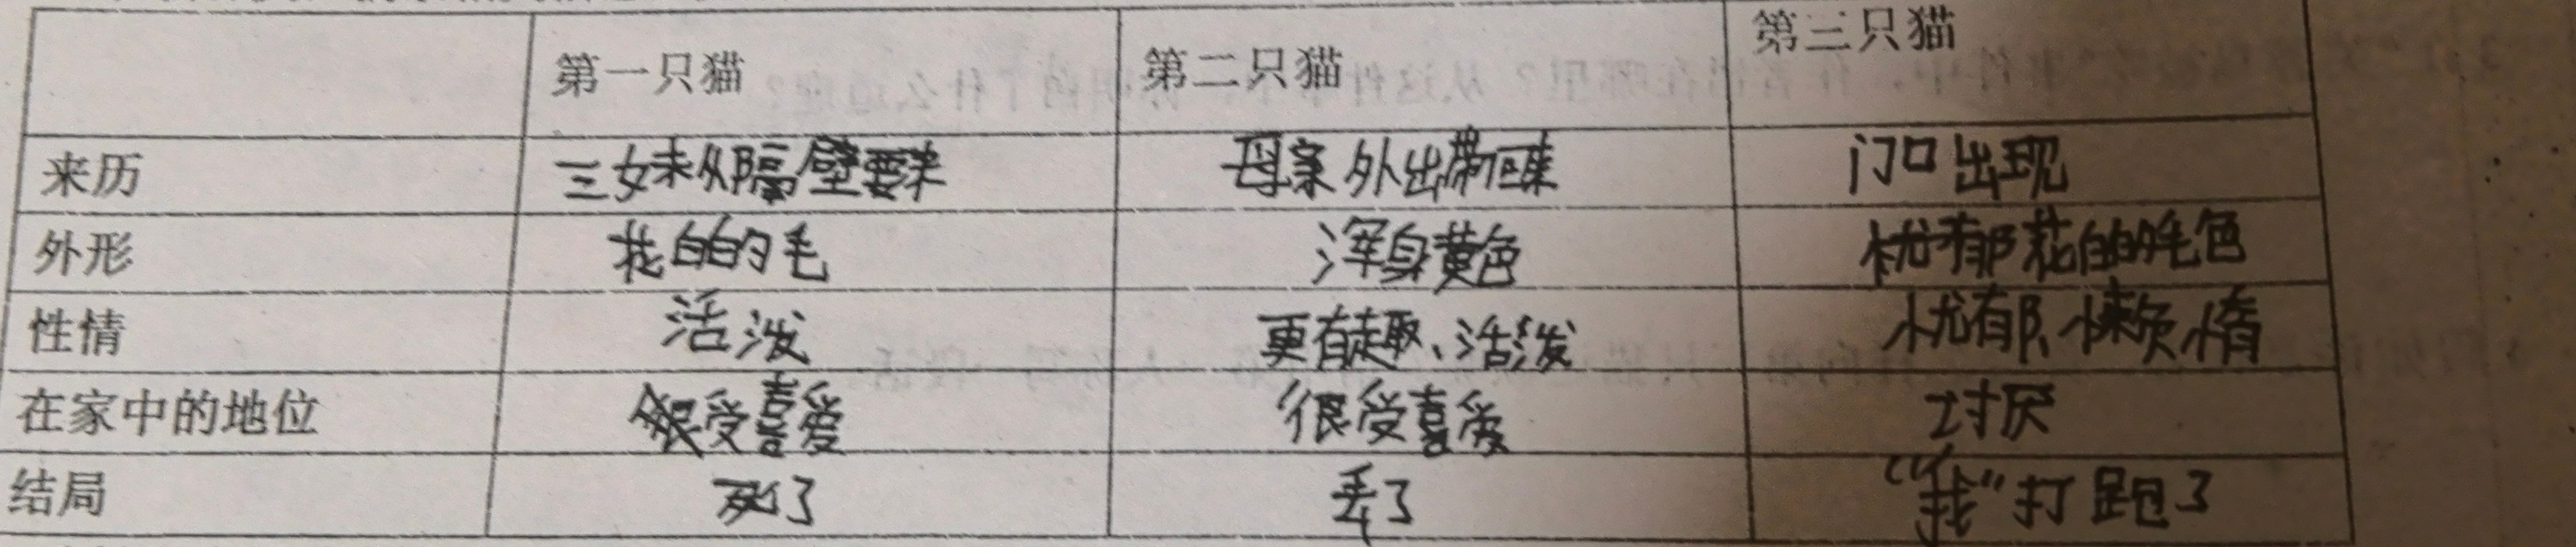 第一只猫 第二只猫 第三只猫
来历 三妹从隔壁要来 母亲外出带回来 门口出现
外形 花白的毛 浑身黄色 花白的毛色
性情 活泼 更有趣、活泼 忧郁、懒惰
在家中的地位 很受喜爱 很受喜爱 讨厌
结局 死了 丢了 “我”打跑了